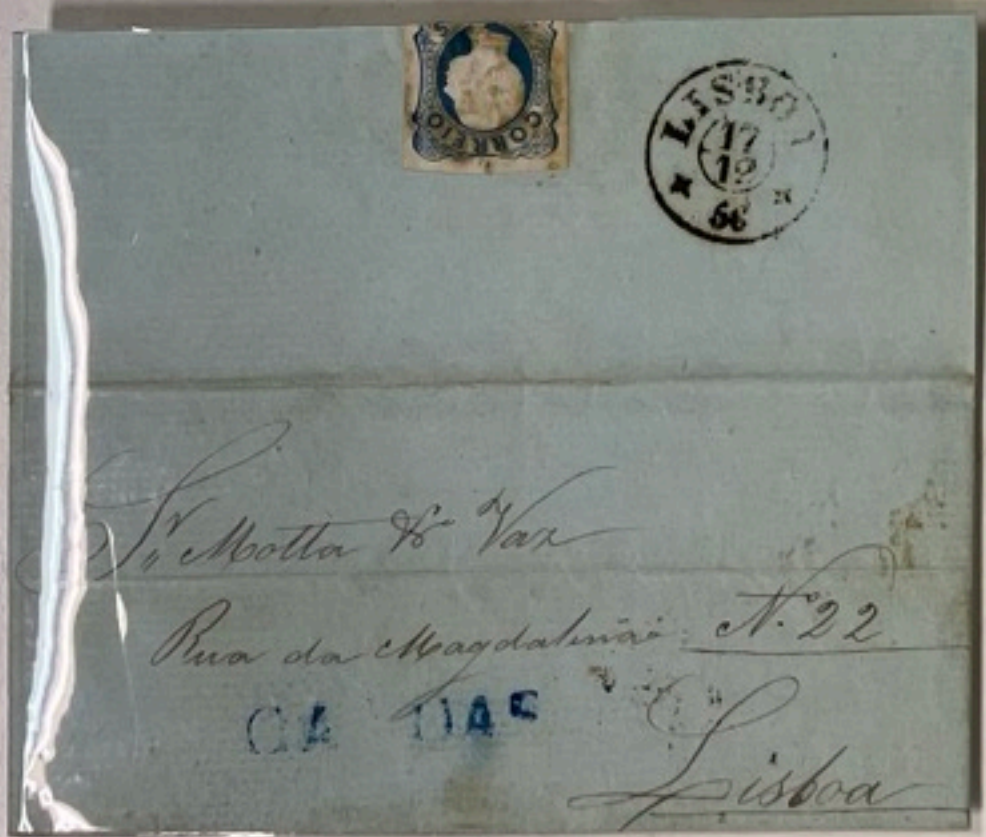 CORREIO
LISBOA
17
12
56
Sr. Motta & Vaz
Rua da Magdalena N.º 22
Lisboa